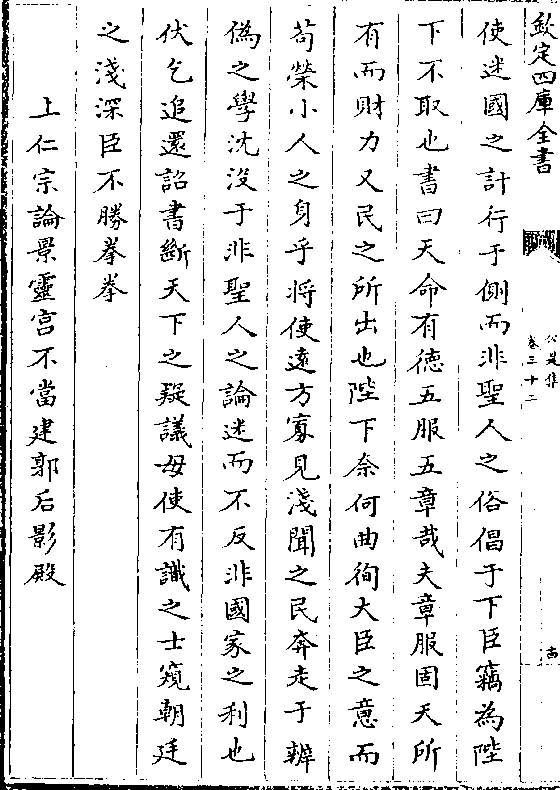 欽定四庫全書
公是集
卷三十二
使迷國之計行于側而非聖人之俗倡于下臣竊為陛
下不取也書曰天命有德五服五章哉夫章服固天所
有而財力又民之所出也陛下奈何曲徇大臣之意而
苟榮小人之身乎將使遠方寡見淺聞之民奔走于辨
偽之學沈没于非聖人之論迷而不反非國家之利也
伏乞追還詔書斷天下之疑議毋使有識之士窺朝廷
之淺深臣不勝拳拳
上仁宗論景靈宫不當建郭后影殿